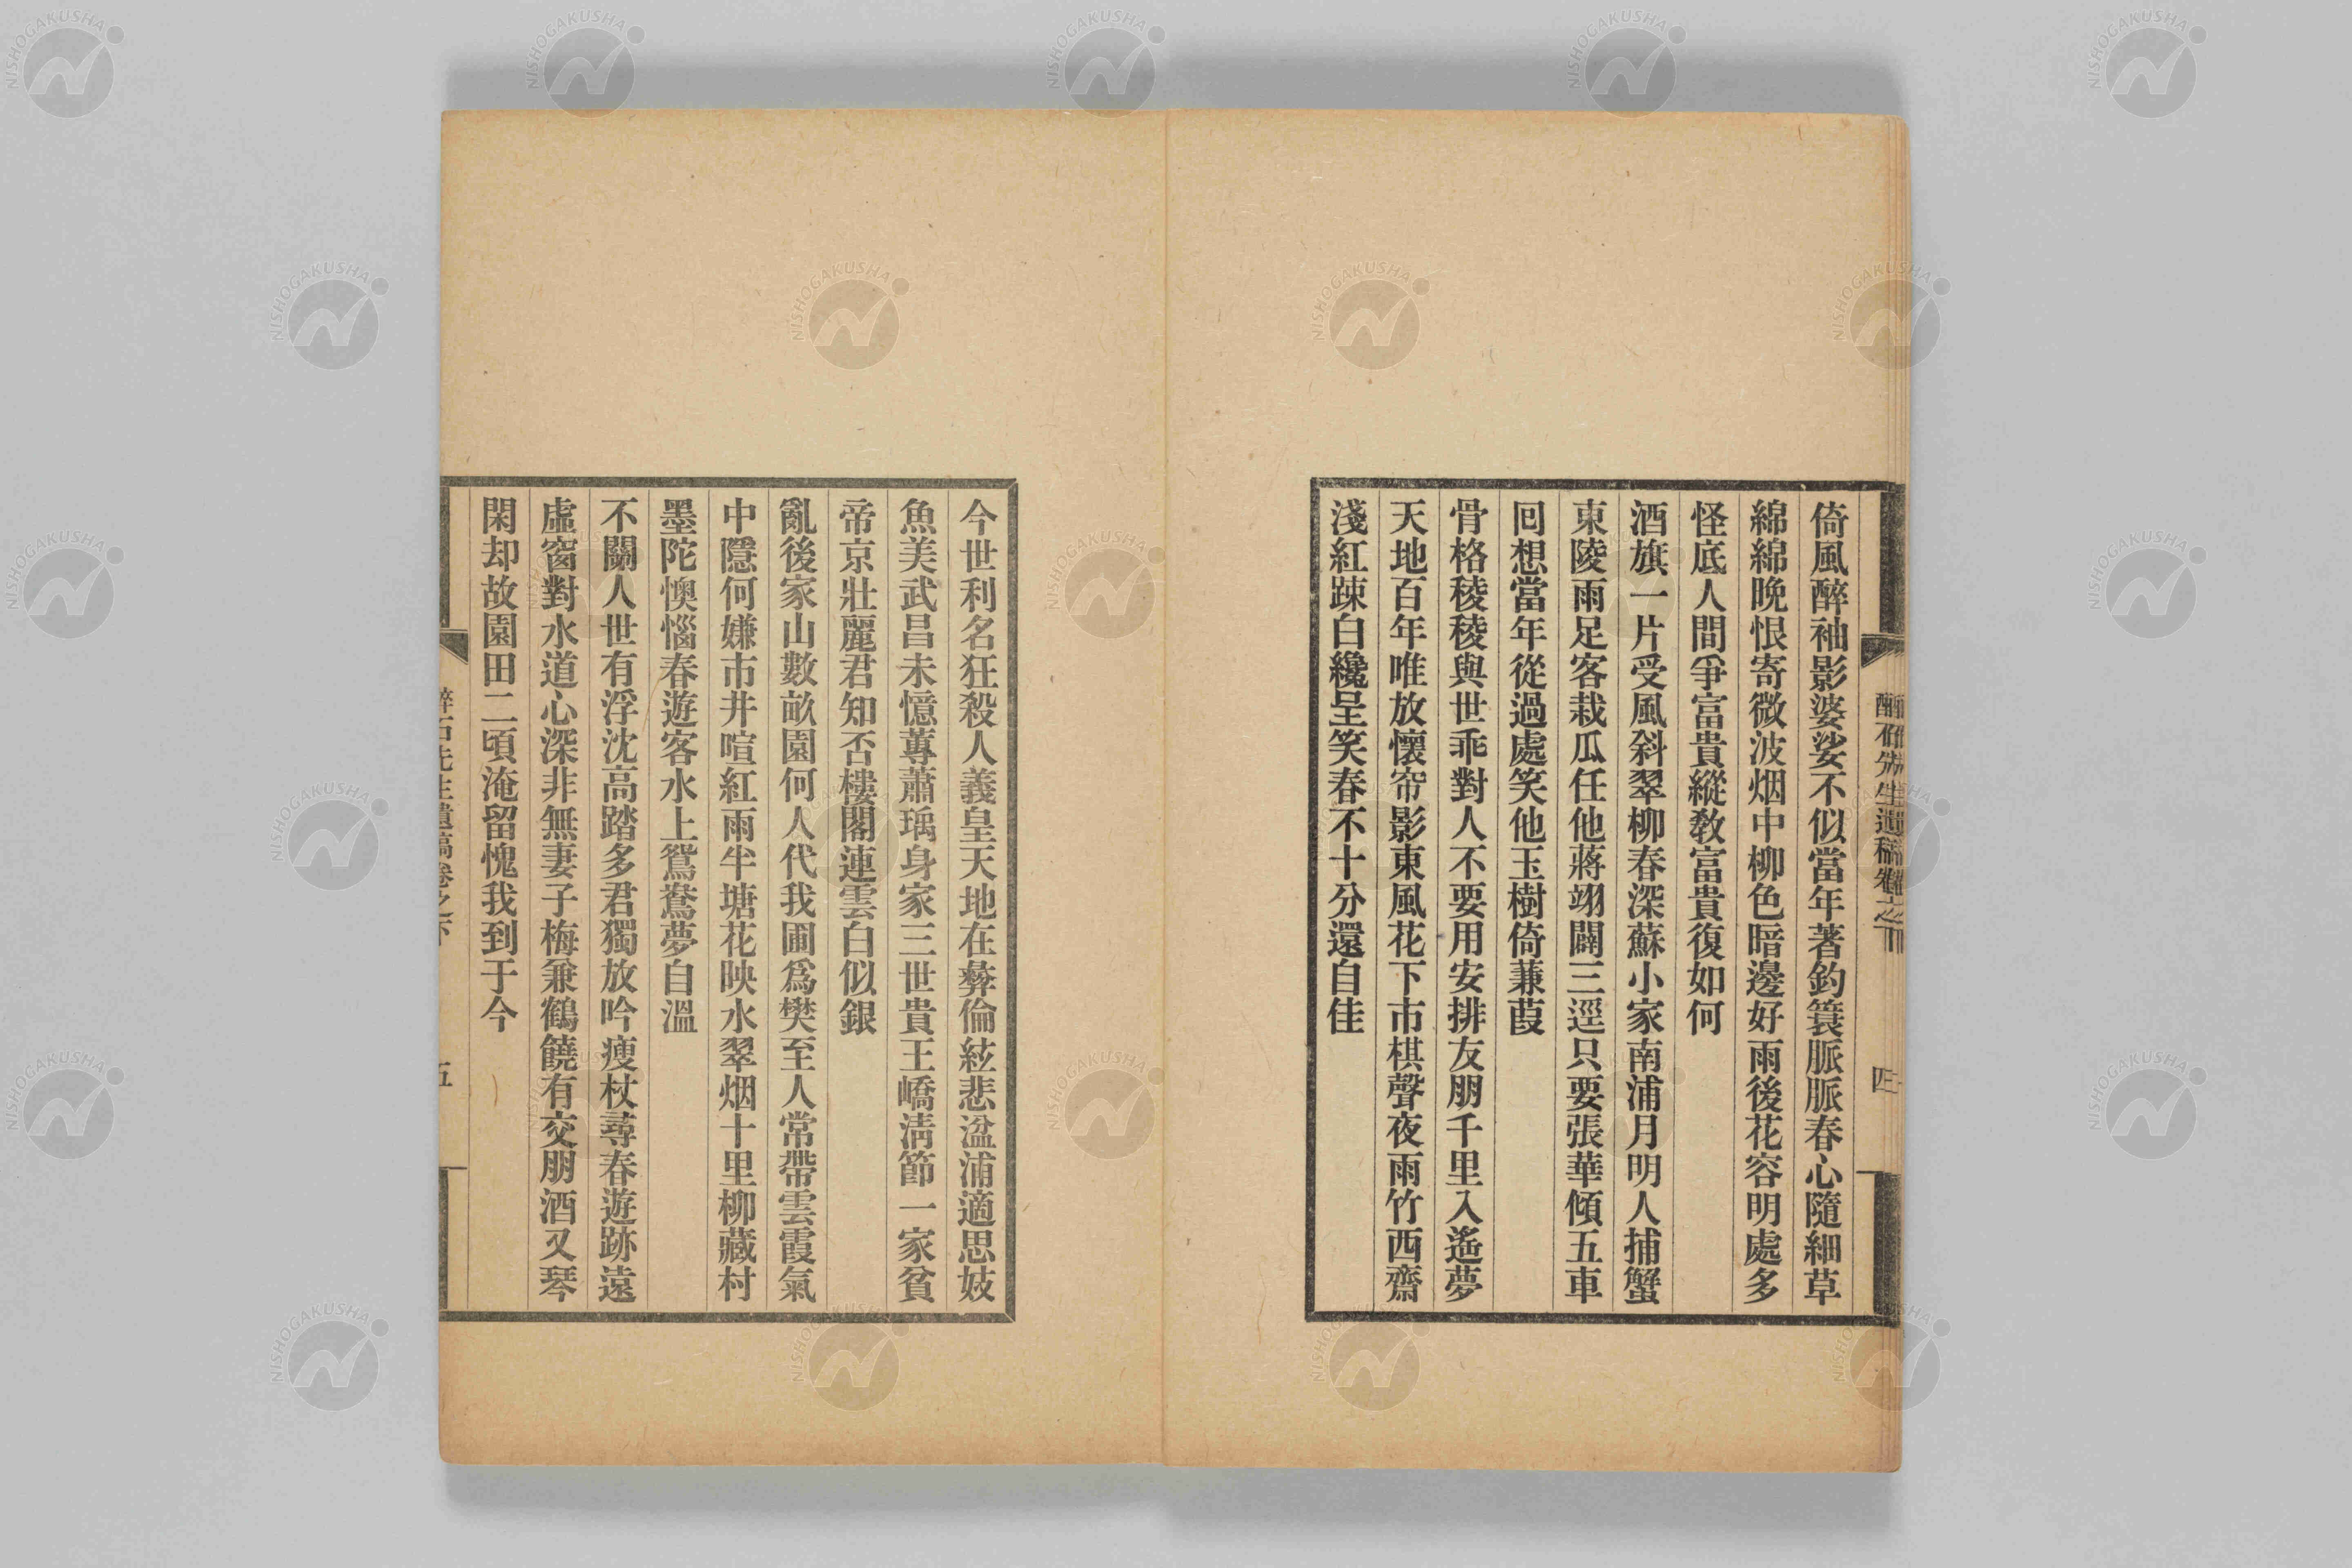 倚風醉袖影婆娑不似當年著釣簑脈脈春心隨細草
綿綿晚恨寄微波烟中柳色暗邊好雨後花容明處多
怪底人間爭富貴縱教富貴復如何
酒旗一片受風斜翠柳春深蘇小家南浦月明人捕蟹
東陵雨足客栽瓜任他蔣翊闢三逕只要張華傾五車
囘想當年從過處笑他玉樹倚蒹葭
骨格稜稜與世乖對人不要用安排友朋千里入遙夢
天地百年唯放懷帘影東風花下市棋聲夜雨竹西齋
淺紅踈白纔呈笑春不十分還自佳
四
今世利名狂殺人義皇天地在彜倫絃悲湓浦適思妓
魚美武昌未憶蓴蕭瑀身家三世貴王嶠淸節一家貧
帝京壯麗君知否樓閣連雲白似銀
亂後家山數畝園何人代我圃爲樊至人常帶雲霞氣
中隱何嫌市井喧紅雨半塘花映水翠烟十里柳藏村
墨陀懊惱春遊客水上鴛鴦夢自溫
不關人世有浮沈高踏多君獨放吟瘦杖尋春遊跡遠
虛窗對水道心深非無妻子梅兼鶴饒有交朋酒又琴
閑却故園田二頃淹留愧我到于今
醉石先生遺稿卷之下
五
NISHOGAKUSHA